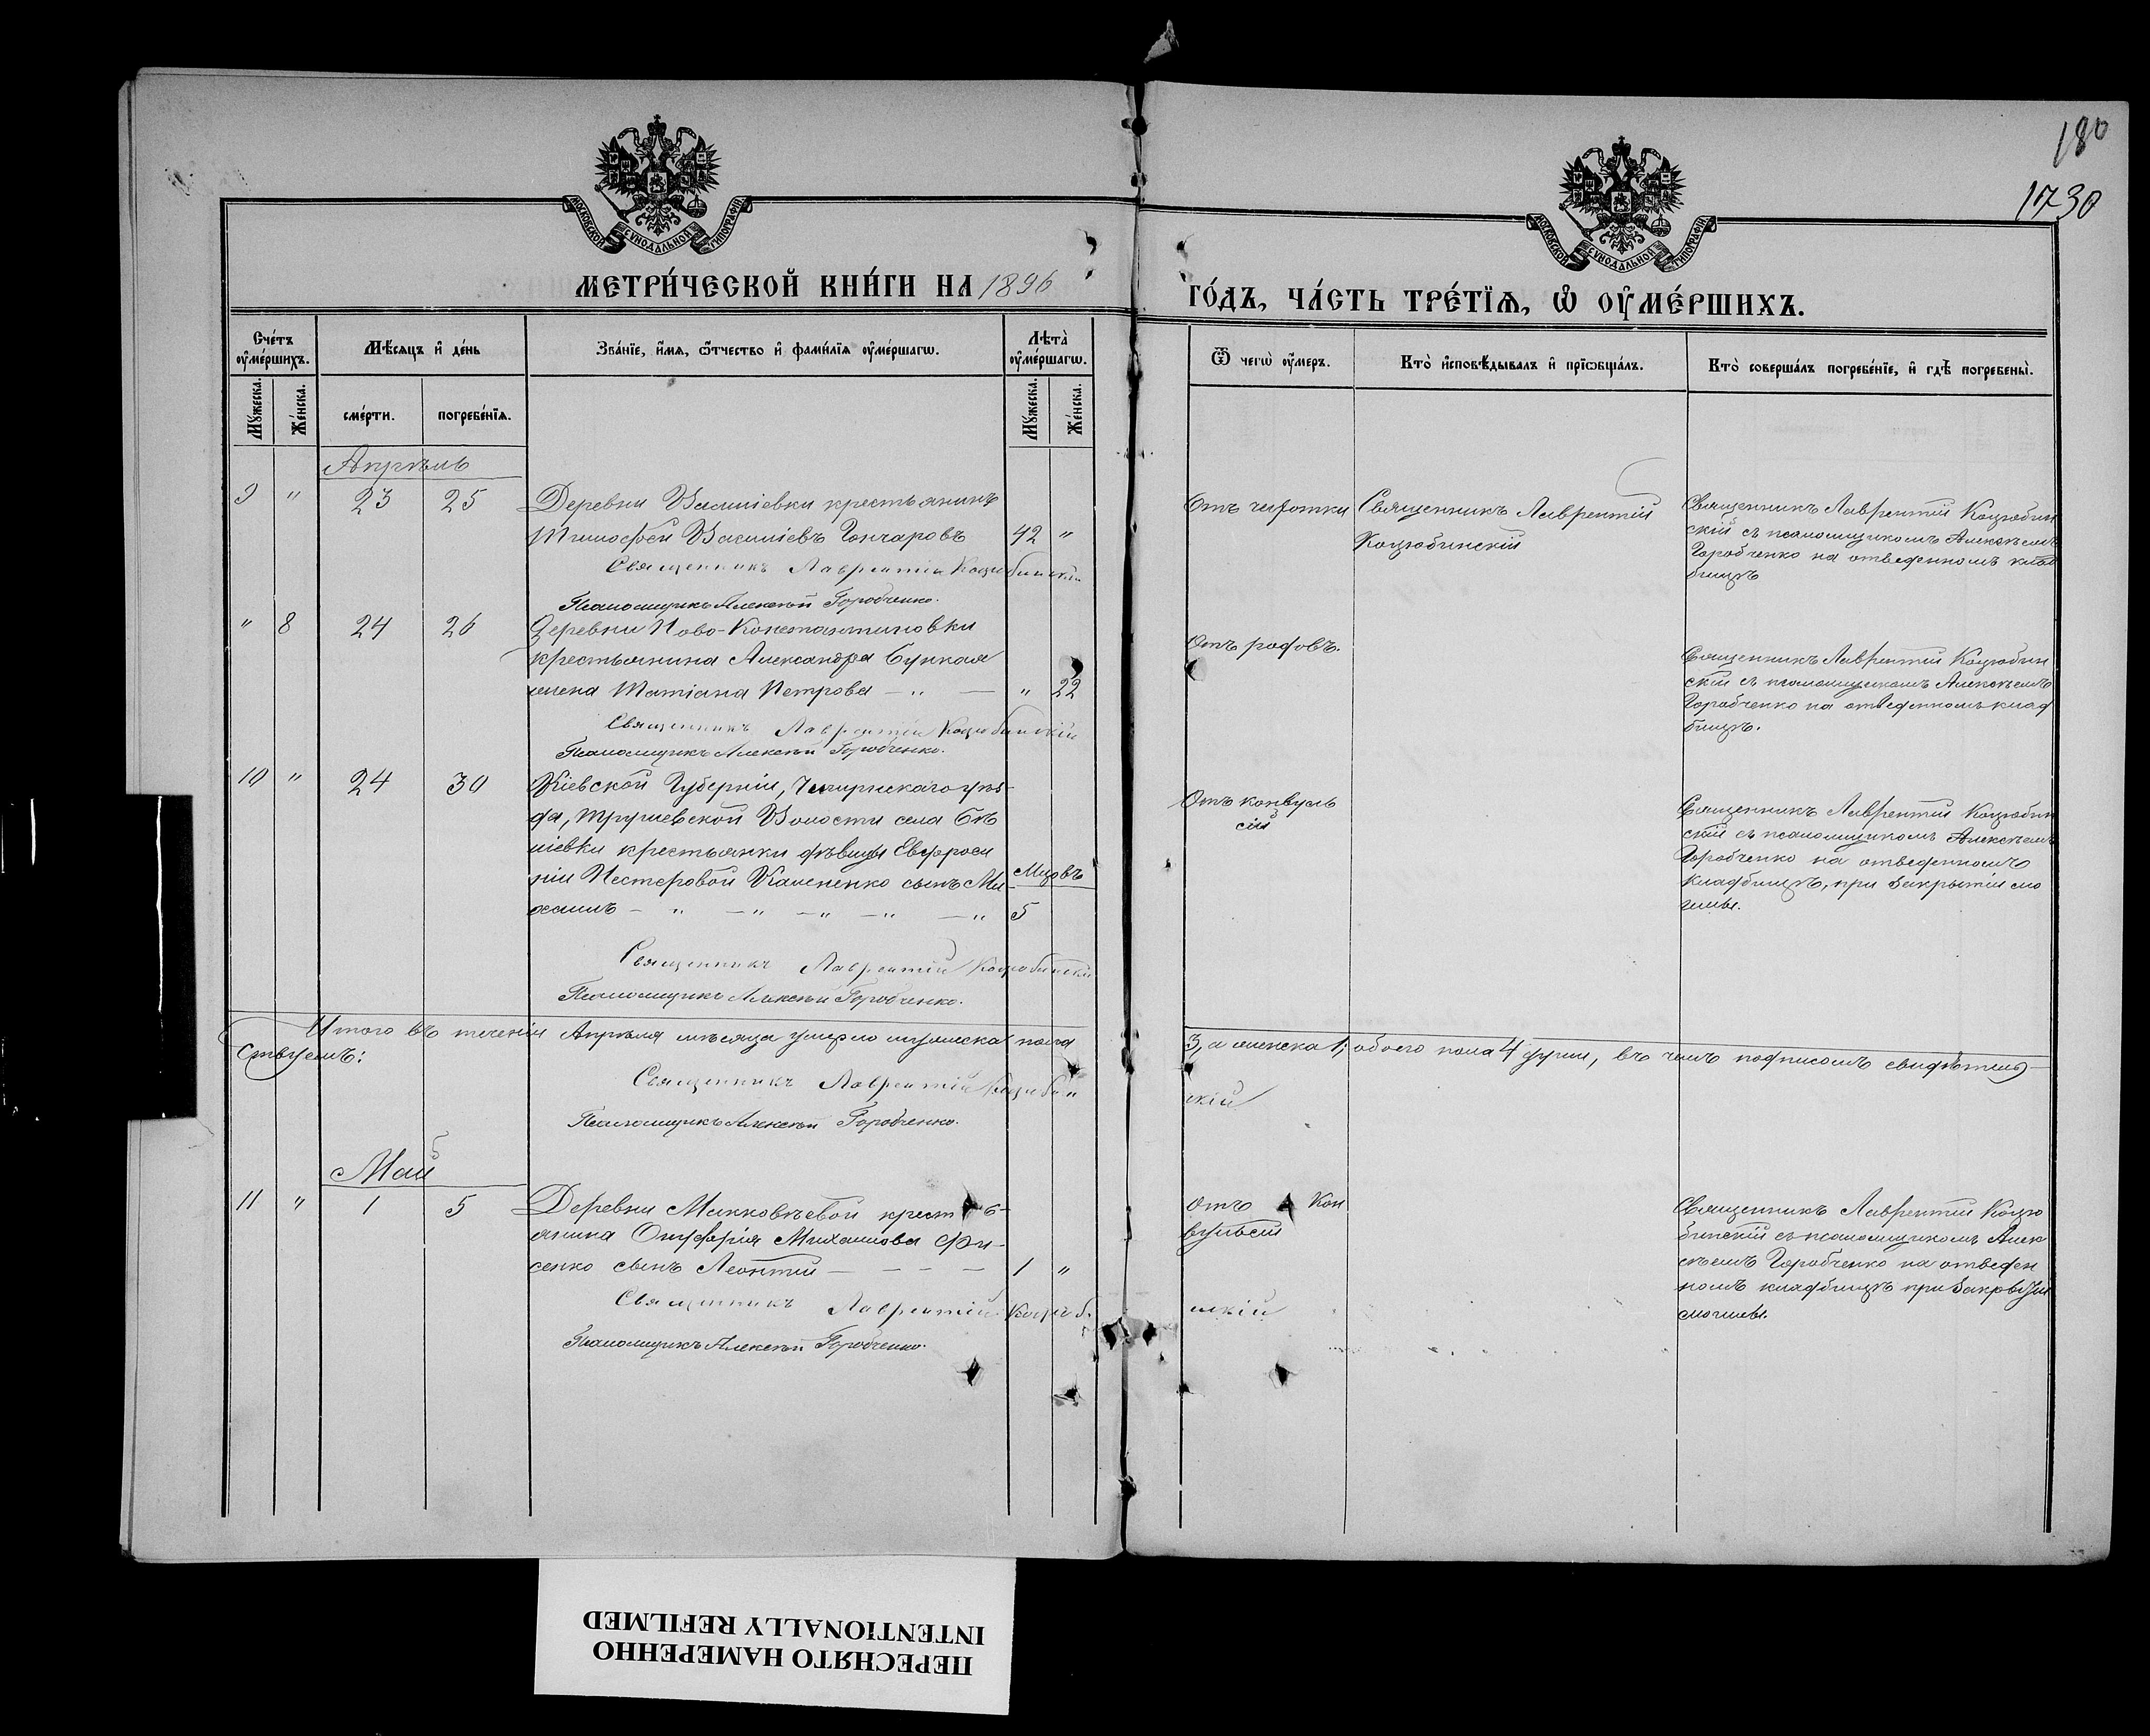 180
1730
МОСКОВСКОЙ СУНОДАЛЬНОЙ ТИПОГРАФІИ
МОСКОВСКОЙ СУНОДАЛЬНОЙ ТИПОГРАФІИ
МЕТРИ́ЧЕСКОЙ КНИ́ГИ НА 1896
ГО́ДЪ, ЧА́СТЬ ТРЕ́ТІѦ, Ѡ ОУМЕ́РШИХЪ.
Сче́тъ оуме́ршихъ.
Мѣ́сяцъ и де́нь
Зва́нїе, и́мя, ѻ́тчество и фами́лїя оуме́ршагѡ.
Лѣта̀ оуме́ршагѡ.
Ѿ чегѡ̀ оу́меръ.
Кто̀ и҆сповѣ́дывалъ и҆ прїѡбща́лъ.
Кто̀ соверша́лъ погребе́нїе, и҆ гдѣ̀ погребены̀.
Му́жеска.
Же́нска.
сме́рти.
погребе́нїѧ.
Му́жеска.
Же́нска.
Апрѣль
9 " 23 25 Деревни Василіевки крестьянинъ
Тимофей Василіевъ Гончаровъ 42 "
Священникъ Лаврентій Коцюбинскій
Псаломщикъ Алексѣй Горобченко.
Отъ чахотки
Священникъ Лаврентій
Коцюбинскій
Священникъ Лаврентій Коцюбин
скій съ псаломщикомъ Алексѣемъ
Горобченко на отведенномъ клад
бищѣ
" 8 24 26 Деревни Ново-Константиновки
крестьянина Александра
жена Татіана Петрова — " — " 22
Священникъ Лаврентій Коцюбинскій
Псаломщикъ Алексѣй Горобченко.
Отъ родовъ.
Священникъ Лаврентій Коцюбин
скій съ псаломщикомъ Алексѣемъ
Горобченко на отведенномъ клад
бищѣ.
10 " 24 30 Кіевской Губерніи, Чигиринскаго уѣз-
да, Трушевской Волости села
крестьянки дѣвицы Евфроси
ніи Нестеровой Калененко сынъ Ми- Мцовъ
хаилъ — " — " — " — " — " 5
Священникъ Лаврентій Коцюбинскій
Псаломщикъ Алексѣй Горобченко.
Отъ конвуль
сій
Священникъ Лаврентій Коцюбин
скій съ псаломщикомъ Алексѣемъ
Горобченко на отведенномъ
кладбищѣ, при закрытіи мо
гилы.
Итого въ теченіи Апрѣля мѣсяца умерло мужеска пола 3, а женска 1, обоего пола 4 души, въ чемъ подписомъ свидѣтель-
ствуемъ:
Священникъ Лаврентій Коцюбин
скій
Псаломщикъ Алексѣй Горобченко.
Май
11 " 1 5 Деревни крестъ-
янина Онуфрія Михаилова Фи-
сенко сынъ Леонтій — — — — 1 "
Священникъ Лаврентій Коцюб.
инскій
Псаломщикъ Алексѣй Горобченко.
Отъ Кон
вульсій
Священникъ Лаврентій Коцю
бинскій съ псаломщикомъ Алек
сѣемъ Горобченко на отведен
номъ кладбищѣ при закрытіи
могилы.
ПЕРЕСНЯТО НАМЕРЕННО
INTENTIONALLY REFILMED